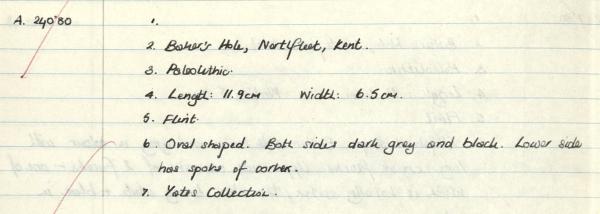 A. 240'80 1.
2. Baker's Hole, Northfleet, Kent.
3. Paleolithic.
4. Length: 11.9cm Width: 6.5cm.
5. Flint.
6. Oval shaped. Both sides dark grey and black. Lower side
has spots of cortex.
7. Yates Collection.